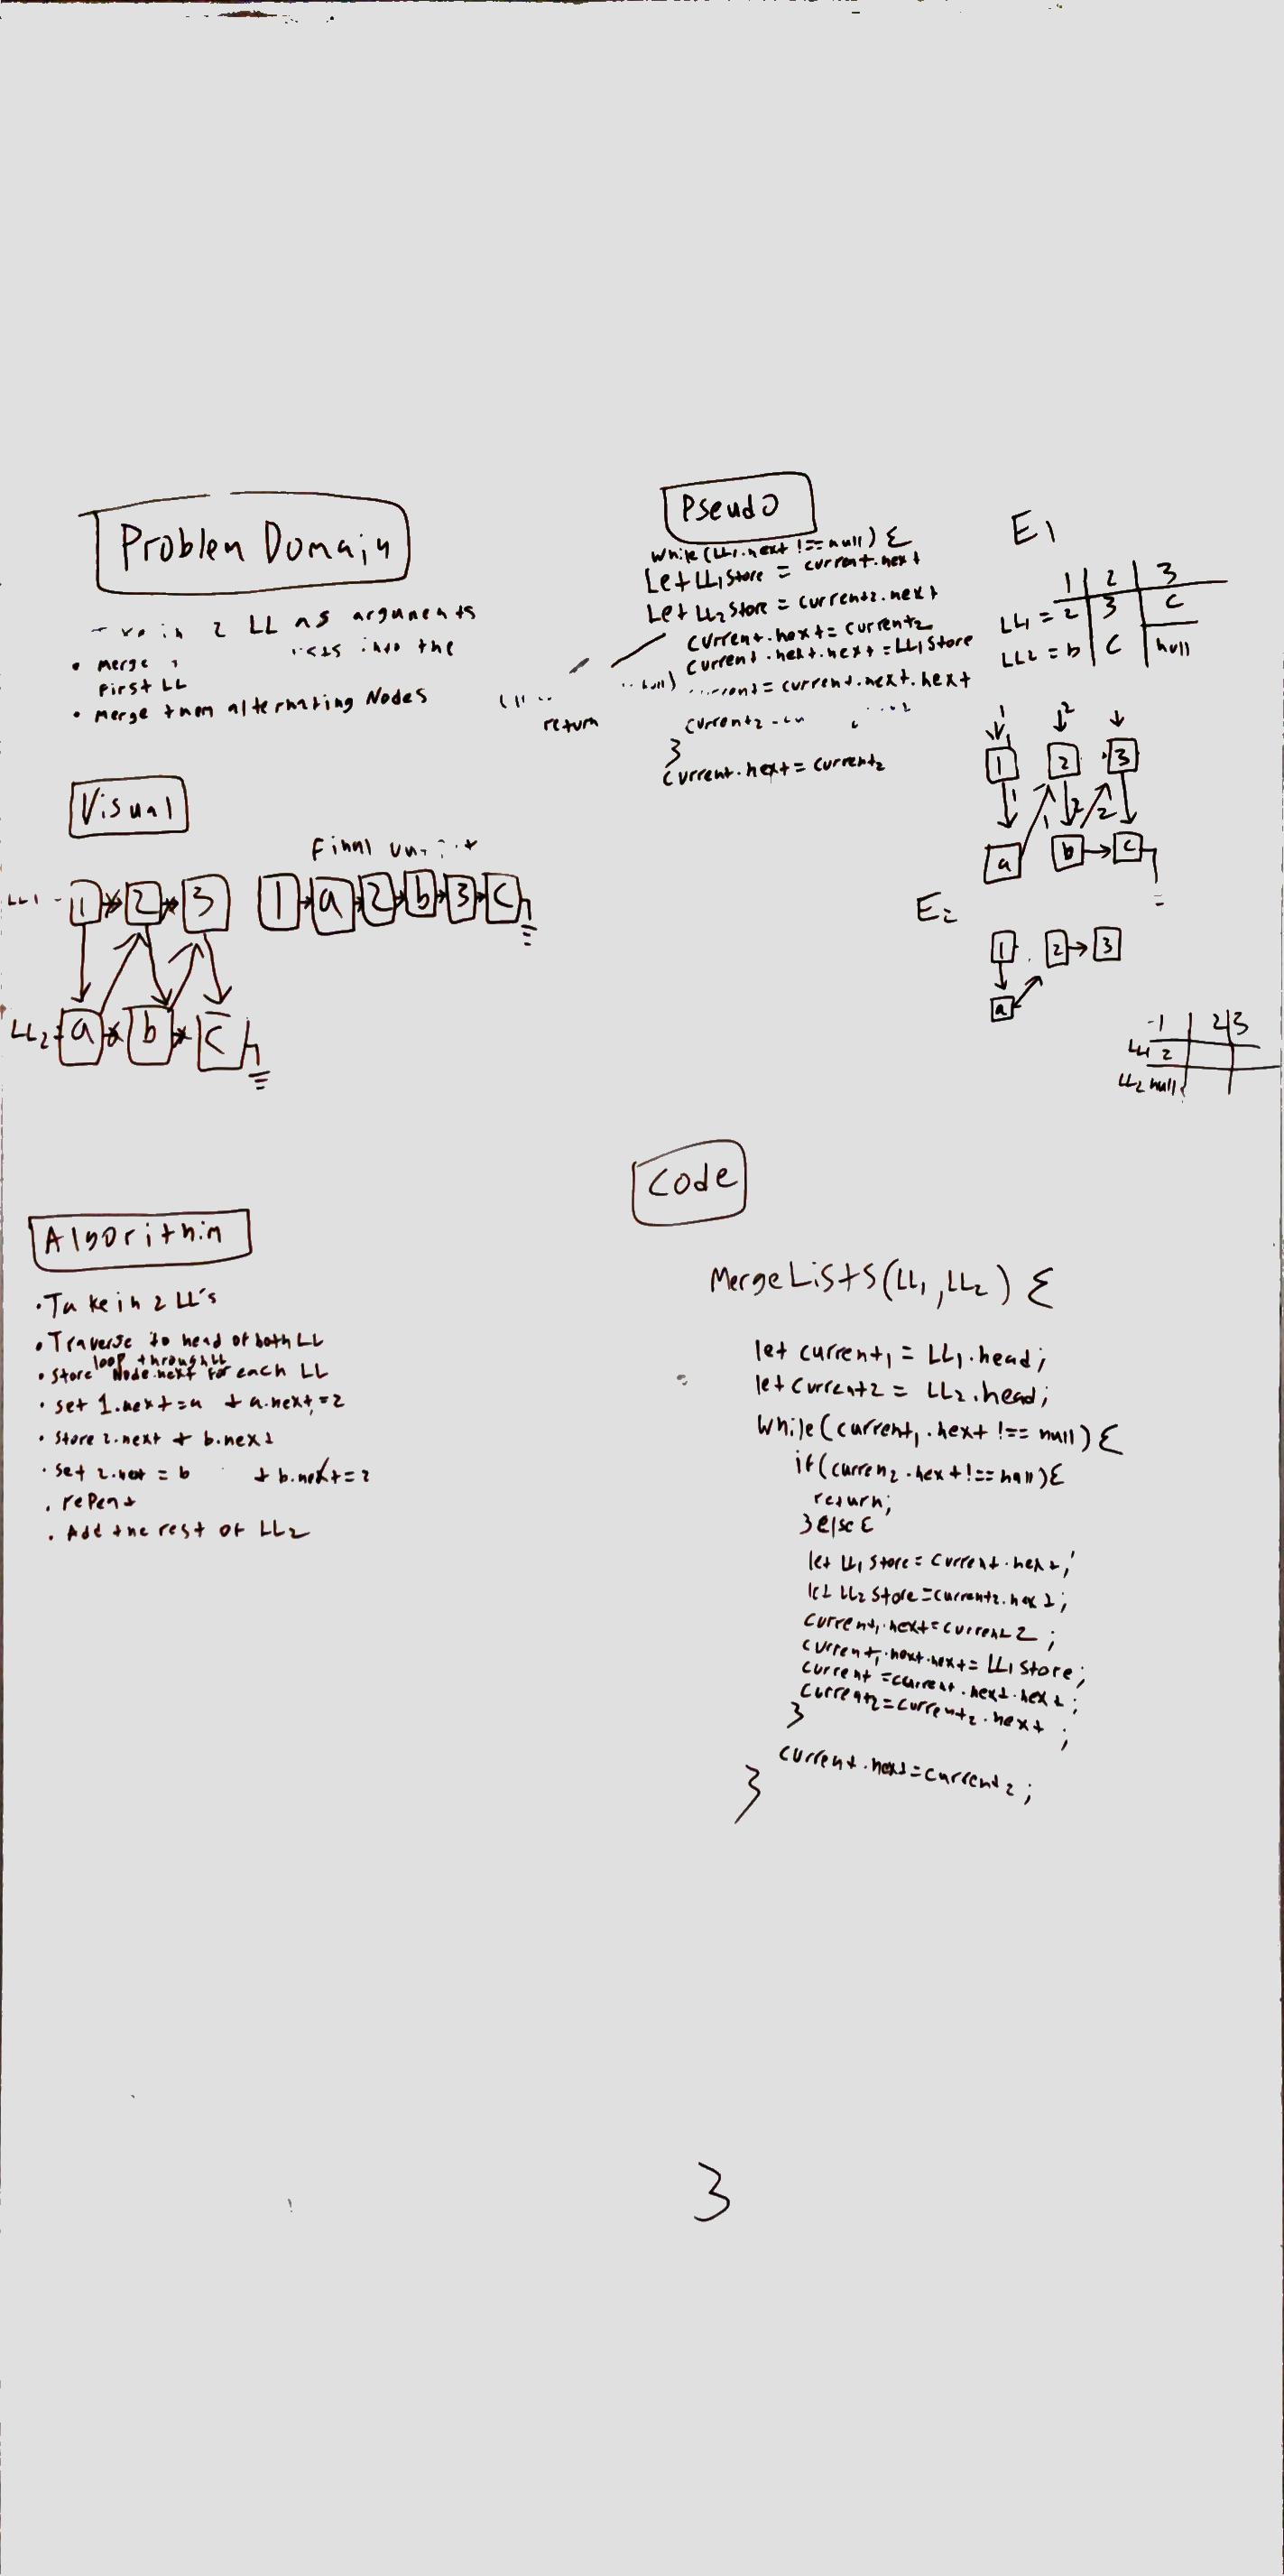 Problem Domain
in 2 LL as arguments
• merge
into the
first LL
• merge them alternating Nodes
Visual
Final
LL1
1 2 3
1 a 2 b 3 c
LL2 = a b c
Algorithm
• Take in 2 LL's
• Traverse to head of both LL
loop through LL
• Store Node.next for each LL
• set 1.next = a + a.next = 2
• Store 2.next + b.next
• set 2.next = b + b.next = 2
• repeat
• Add the rest of LL2
Pseudo
while (LL1.next !== null) {
Let LL1Store = current.next
Let LL2Store = current2.next
current.next = current2
current.next.next = LL1Store
null)
= current.next.next
return
current2
}
current.next = current2
E1
1 2 3
LL1 = 2 3 c
LL2 = b c null
1 2
1 2 3
1 1 2 2
a b c
E2
1 2 3
a
1 2 3
LL1 2
LL2 null
Code
MergeLists(LL1, LL2) {
let current1 = LL1.head;
let current2 = LL2.head;
while (current1.next !== null) {
if (curren2.next !== null) {
return;
} else {
let LL1Store = current.next;
let LL2Store = current2.next;
current1.next = current2;
current1.next.next = LL1Store;
current = current.next.next;
current2 = current2.next;
}
current.next = current2;
}
3